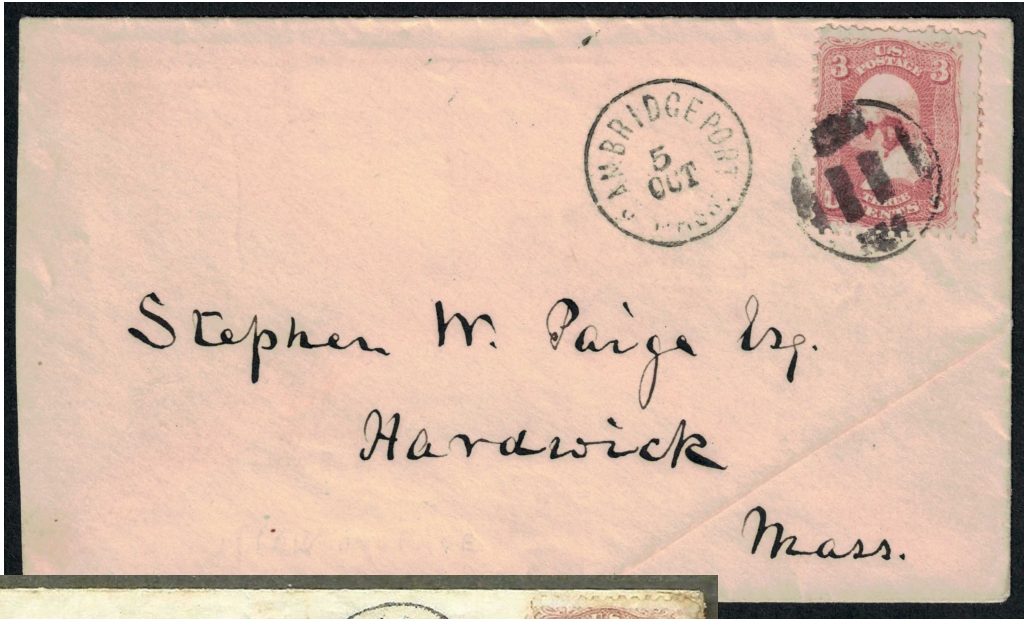 U.S.
POSTAGE
3 3
CAMBRIDGEPORT
5
OCT
MASS.
THREE
CENTS
Stephen W. Paige Esq.
Hardwick
Mass.
U.S.